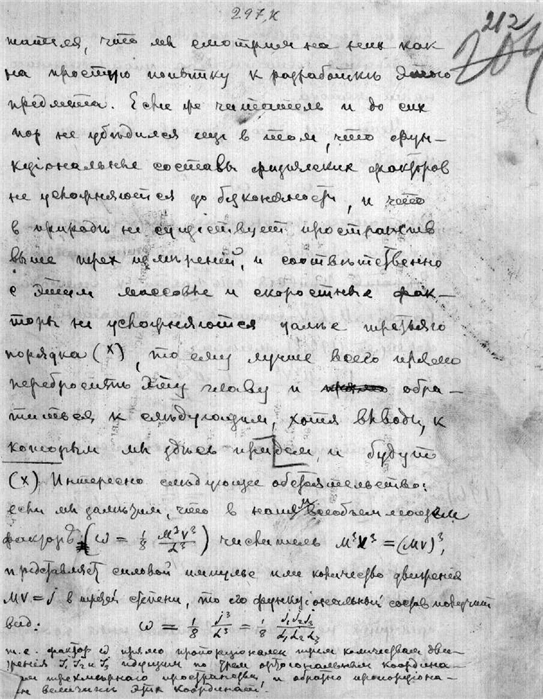 297,к
212
204
тателя, что мы смотрим на них как
на простую попытку к разработкѣ этого
предмета. Если же читатель и до сих
пор не убѣдился еще в том, что фун-
кціональные составы физических факторов
не усложняются до безконечности, и что
в природѣ не существует пространств
выше трех измѣреній, и соотвѣтственно
с этим массовые и скоростные фак-
торы не усложняются далѣе третьяго
порядка (x), то ему лучше всего прямо
перебросить эту главу и обра-
титься к слѣдующим, хотя выводы, к
которым мы здѣсь придем, и будут
(x) Интересно слѣдующее обстоятельство:
если мы допустим, что в нашем всеобъемлющем
факторѣ (ω = 1/8 M³V³/L³) числитель M³V³ = (MV)³,
представляет силовой импульс или количество движенія
MV = J в третьей степени, то его функціональный состав получит
вид: ω = 1/8 J³/L³ = 1/8 J₁J₂J₃/L₁L₂L₃
т.е. фактор ω прямо пропорціонален трем количествам дви-
женія J₁ J₂ и J₃ идущим по трем ортогональным координа-
там трехмѣрного пространства, и обратно пропорціона-
лен величинѣ этих координат.